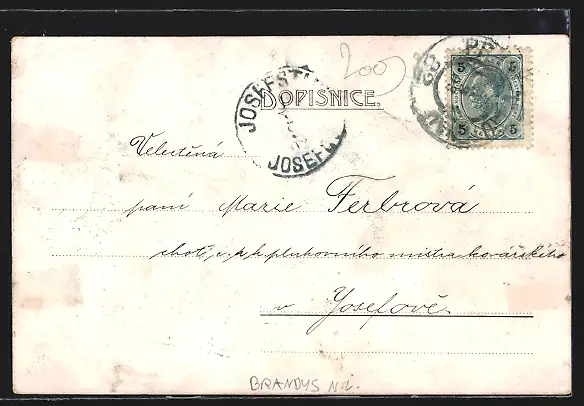 200
DOPISNICE.
JOSEFST
JOSEF
5 5
5 5
Velectěná
paní Marie Ferbrová
chotí c. a k. plukovního mistra kovářského
v Josefově.
BRANDYS N.L.